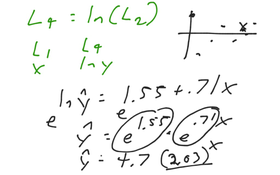 L4 = ln(L2)
L1 L4
x ln y
ln ŷ = 1.55 + .71x
e e
ŷ = e^1.55 · e^.71x
ŷ = 4.7 (2.03)^x